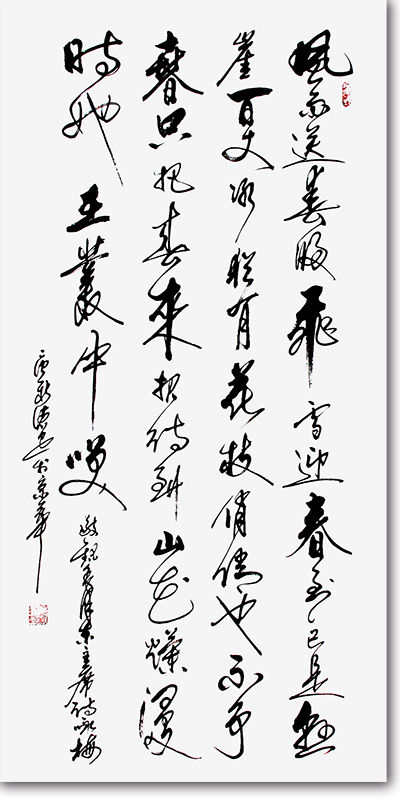 風雨送春歸飛雪迎春到已是懸
崖百丈冰猶有花枝俏俏也不爭
春只把春來報待到山花爛漫
時她在叢中咲
敬錄毛澤東主席詩咏梅
於京華